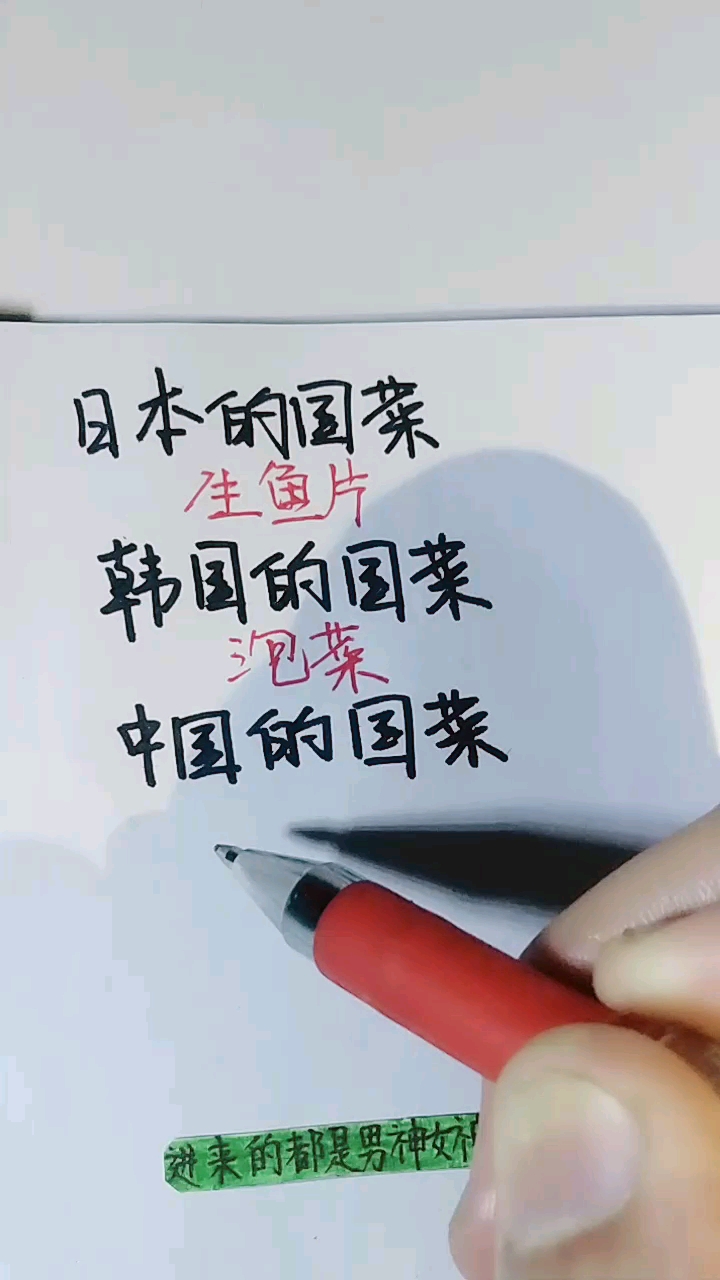 日本的国菜
生鱼片
韩国的国菜
泡菜
中国的国菜
进来的都是男神女神